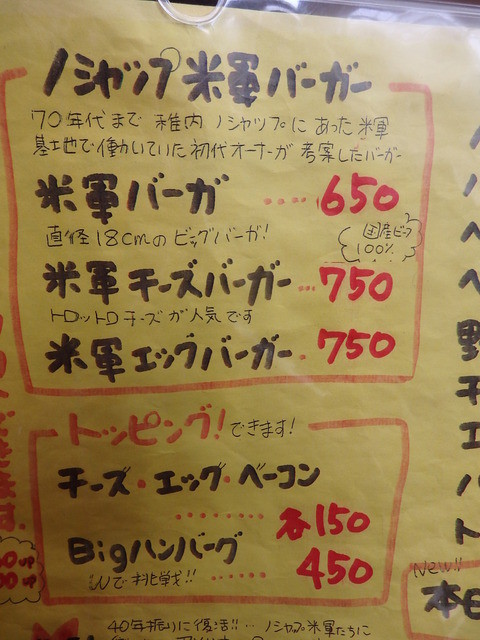 ノシャップ米軍バーガー
'70年代まで 稚内ノシャップにあった米軍
基地で働いていた初代オーナーが考案したバーガー
米軍バーガ ････ 650
直径18cmのビッグバーガ!
国産ビーフ
100%
米軍チーズバーガー … 750
トロットロチーズが人気です
米軍エッグバーガー . 750
トッピング!できます!
チーズ・エッグ・ベーコン
........ 各150
Bigハンバーグ
Wで挑戦!! ...... 450
40年振りに復活!! … ノシャップ米軍たちに
New!!
本日